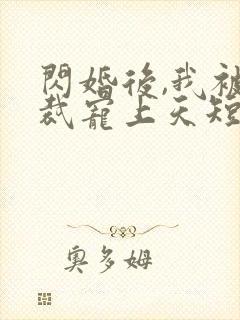 閃婚後,我被
裁寵上天短
奧多姆